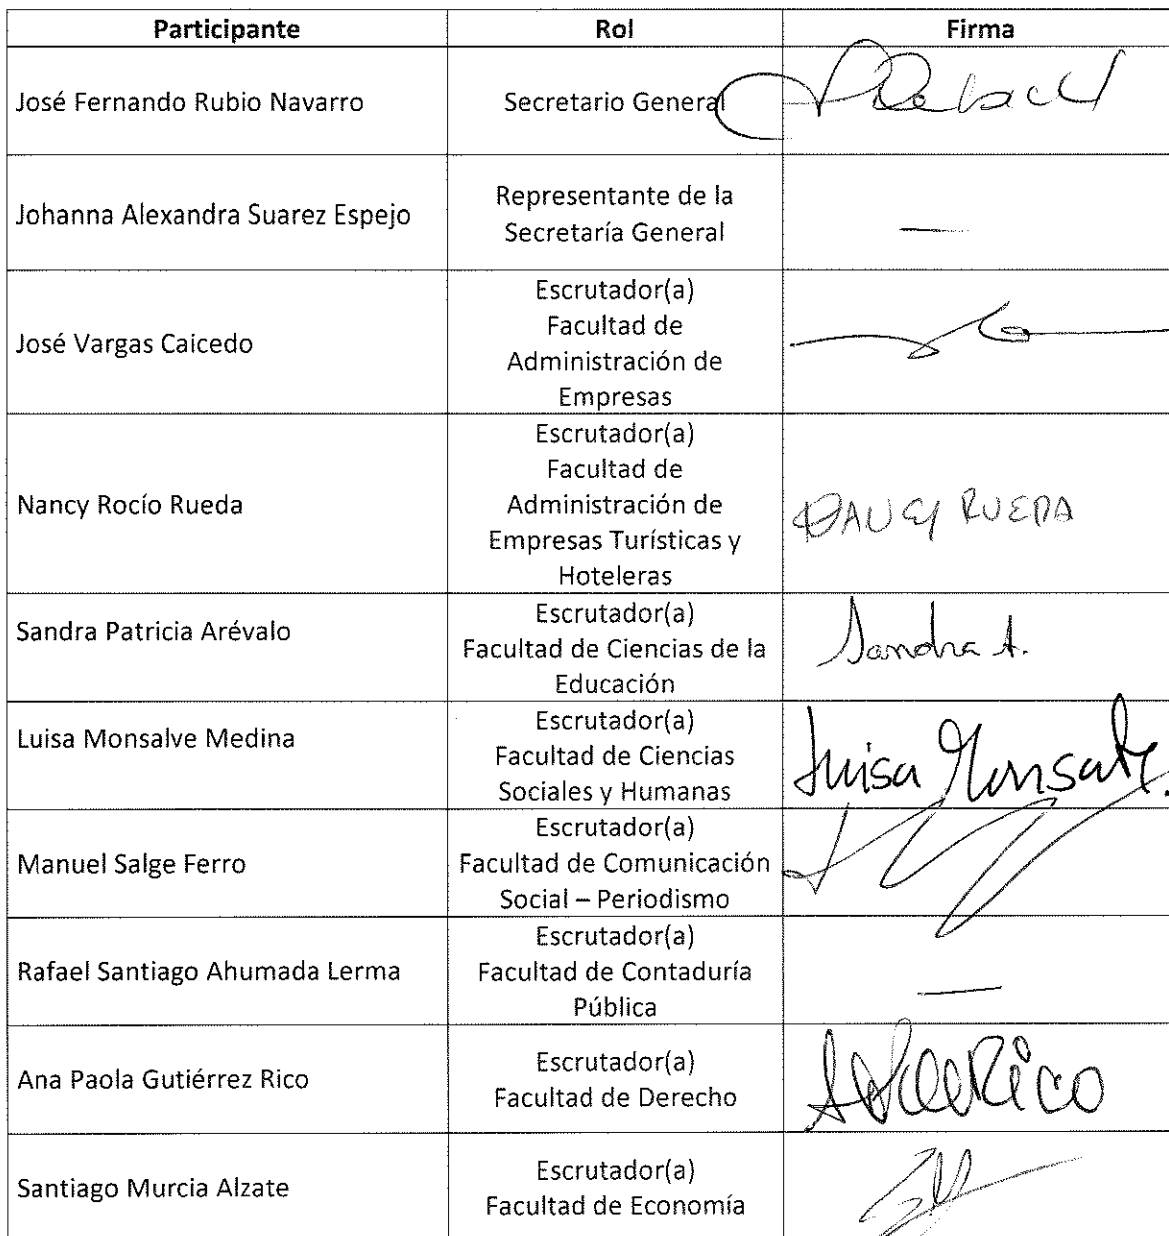 Participante Rol Firma
José Fernando Rubio Navarro Secretario General
Johanna Alexandra Suarez Espejo Representante de la
Secretaría General —
José Vargas Caicedo Escrutador(a)
Facultad de
Administración de
Empresas
Nancy Rocío Rueda Escrutador(a)
Facultad de
Administración de
Empresas Turísticas y
Hoteleras
NANCY RUEDA
Sandra Patricia Arévalo Escrutador(a)
Facultad de Ciencias de la
Educación
Sandra A.
Luisa Monsalve Medina Escrutador(a)
Facultad de Ciencias
Sociales y Humanas
Luisa Monsalve.
Manuel Salge Ferro Escrutador(a)
Facultad de Comunicación
Social – Periodismo
Rafael Santiago Ahumada Lerma Escrutador(a)
Facultad de Contaduría
Pública —
Ana Paola Gutiérrez Rico Escrutador(a)
Facultad de Derecho
Rico
Santiago Murcia Alzate Escrutador(a)
Facultad de Economía